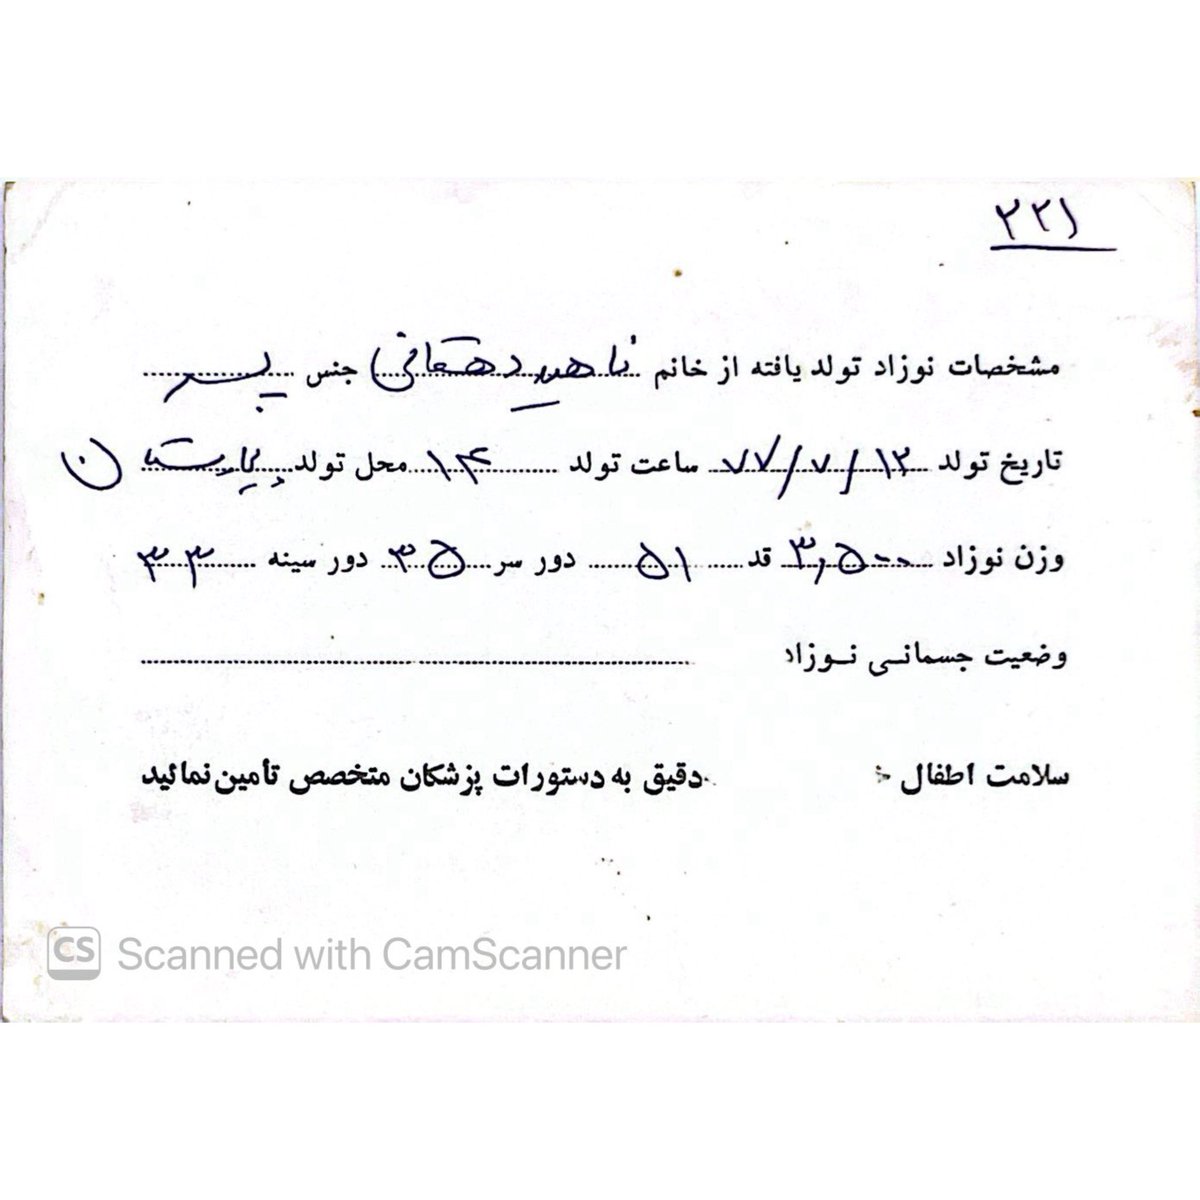 ۲۲۱
مشخصات نوزاد تولد یافته از خانم ناهید دهقانی جنس پسر
تاریخ تولد ۷۷/۷/۱۲ ساعت تولد ۱۴ محل تولد بیمارستان
وزن نوزاد ۳,۵۰۰ قد ۵۱ دور سر ۳۵ دور سینه ۳۳
وضعیت جسمانی نوزاد
سلامت اطفال دقیق به دستورات پزشکان متخصص تأمین نمائید
CS Scanned with CamScanner